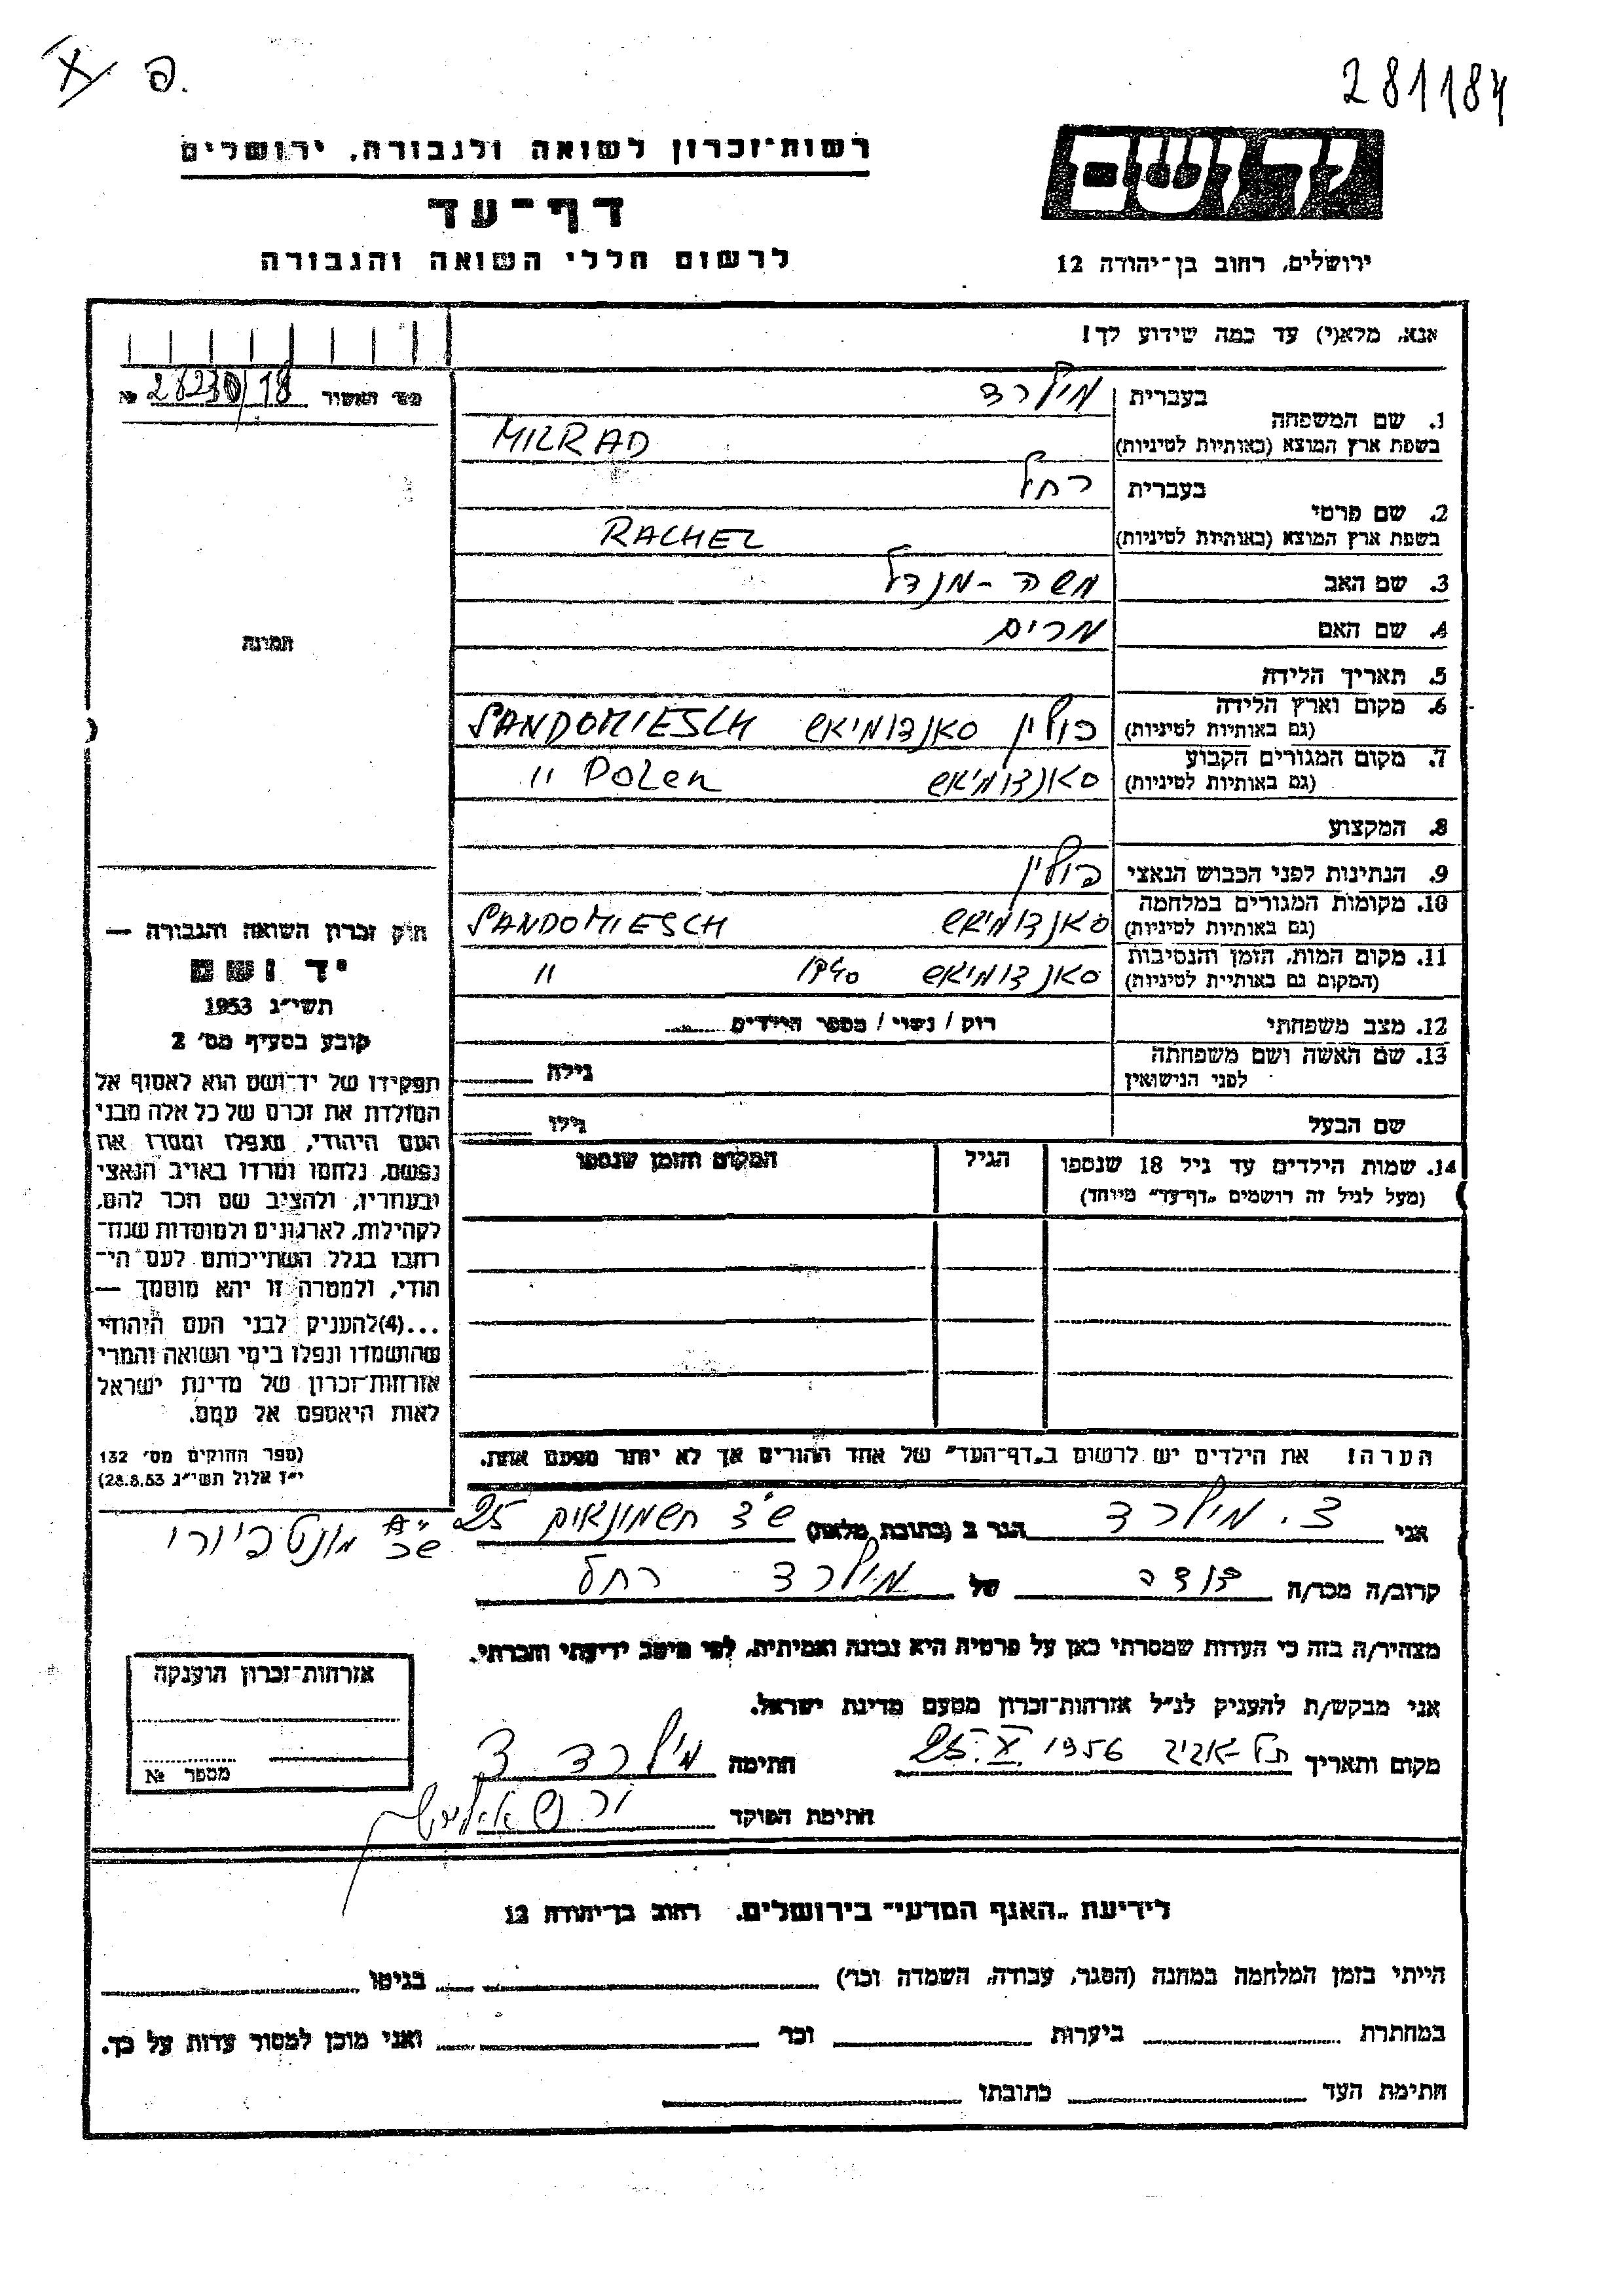 פ.
281184
רשות־זכרון לשואה ולגבורה, ירושלים
דף־עד
לרשום חללי השואה והגבורה
ירושלים, רחוב בן־יהודה 12
אנא, מלא(י) עד כמה שידוע לך!
מס׳ האשור № 26230/18
1. שם המשפחה בעברית מילרד
בשפת ארץ המוצא (באותיות לטיניות) MILRAD
2. שם פרטי בעברית רחל
בשפת ארץ המוצא (באותיות לטיניות) RACHEL
3. שם האב משה - מנדל
4. שם האם מרים
תמונה
5. תאריך הלידה
6. מקום וארץ הלידה פולין סאנדומיאש SANDOMIESCH
(גם באותיות לטיניות)
7. מקום המגורים הקבוע סאנדומיאש " Polen
(גם באותיות לטיניות)
8. המקצוע
9. הנתינות לפני הכבוש הנאצי פולין
10. מקומות המגורים במלחמה סאנדומיאש SANDOMIESCH
(גם באותיות לטיניות)
11. מקום המות, הזמן והנסיבות סאנדומיאש 1940 "
(המקום גם באותיות לטיניות)
12. מצב משפחתי רוק / נשוי / מספר הילדים
13. שם האשה ושם משפחתה גילה
לפני הנישואין
שם הבעל גילו
14. שמות הילדים עד גיל 18 שנספו הגיל המקום והזמן שנספו
(מעל לגיל זה רושמים „דף־עד" מיוחד)
הערה! את הילדים יש לרשום ב„דף־העד" של אחד ההורים אך לא יותר מפעם אחת.
חוק זכרון השואה והגבורה —
יד ושם
תשי״ג 1953
קובע בסעיף מס׳ 2
תפקידו של יד־ושם הוא לאסוף אל
המולדת את זכרם של כל אלה מבני
העם היהודי, שנפלו ומסרו את
נפשם, נלחמו ומרדו באויב הנאצי
ובעוזריו, ולהציב שם וזכר להם,
לקהילות, לארגונים ולמוסדות שנח־
רבו בגלל השתייכותם לעם הי־
הודי, ולמטרה זו יהא מוסמך —
...(4)להעניק לבני העם היהודי
שהושמדו ונפלו בימי השואה והמרי
אזרחות־זכרון של מדינת ישראל
לאות היאספם אל עמם.
(ספר החוקים מס׳ 132
י״ז אלול תשי״ג 28.8.53)
אני צ. מילרד הגר ב (כתובת מלאה) חשמונאים 25
שכ׳ מונטפיורי
קרוב/ה מכר/ה דודה של מילרד רחל
מצהיר/ה בזה כי העדות שמסרתי כאן על פרטיה היא נכונה ואמיתית, לפי מיטב ידיעתי והכרתי.
אני מבקש/ת להעניק לנ״ל אזרחות־זכרון מטעם מדינת ישראל.
מקום ותאריך תל-אביב 25.X.1956 חתימה מילרד צ
חתימת הפוקד
אזרחות־זכרון הוענקה
מספר №
לידיעת „האגף המדעי" בירושלים. רחוב בן־יהודה 12
הייתי בזמן המלחמה במחנה (הסגר, עבודה, השמדה וכו׳) בגיטו
במחתרת ביערות וכו׳ ואני מוכן למסור עדות על כך.
חתימת העד כתובתו